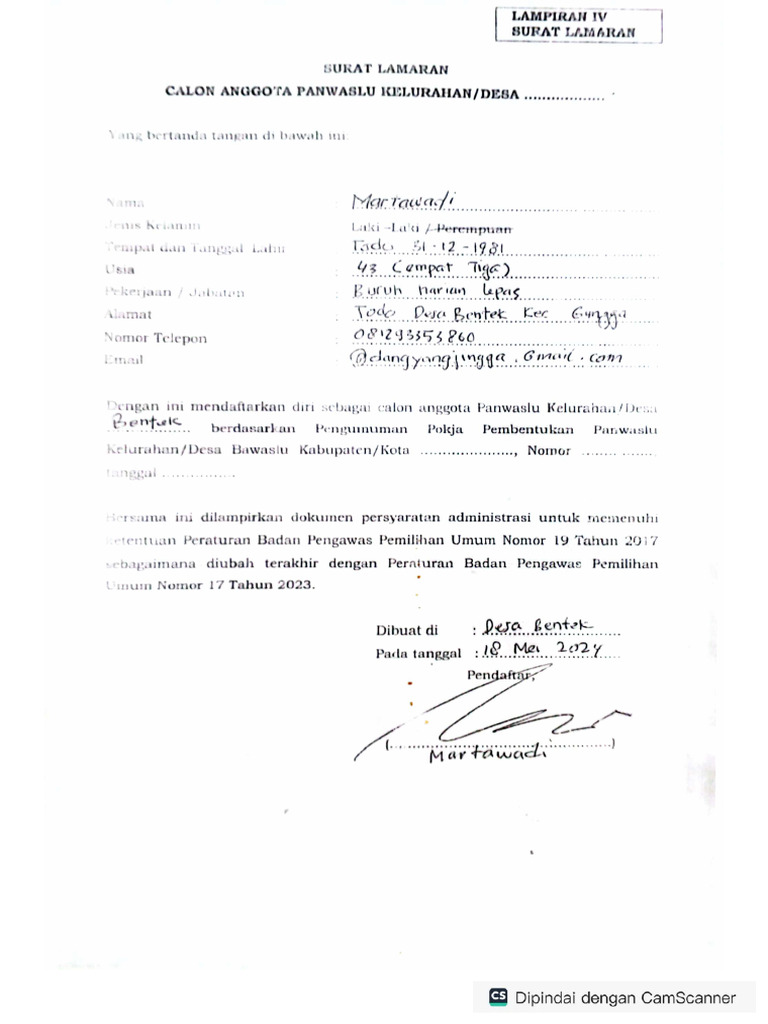 LAMPIRAN IV
SURAT LAMARAN
SURAT LAMARAN
CALON ANGGOTA PANWASLU KELURAHAN/DESA ..................
Yang bertanda tangan di bawah ini:
Nama : Martawadi
Jenis Kelamin : Laki –Laki / Perempuan
Tempat dan Tanggal Lahir : Todo 31-12-1981
Usia : 43 (empat Tiga)
Pekerjaan / Jabatan : Buruh harian lepas
Alamat : Todo Desa Bentek Kec Gangga
Nomor Telepon : 081293353860
Email : @dangyangjingga.Gmail.com
Dengan ini mendaftarkan diri sebagai calon anggota Panwaslu Kelurahan/Desa
Bentek berdasarkan Pengumuman Pokja Pembentukan Panwaslu
Kelurahan/Desa Bawaslu Kabupaten/Kota ...................., Nomor .................
tanggal ................
Bersama ini dilampirkan dokumen persyaratan administrasi untuk memenuhi
ketentuan Peraturan Badan Pengawas Pemilihan Umum Nomor 19 Tahun 2017
sebagaimana diubah terakhir dengan Peraturan Badan Pengawas Pemilihan
Umum Nomor 17 Tahun 2023.
Dibuat di : Desa Bentek
Pada tanggal : 18 Mei 2024
Pendaftar,
(.................................................)
Martawadi
CS Dipindai dengan CamScanner